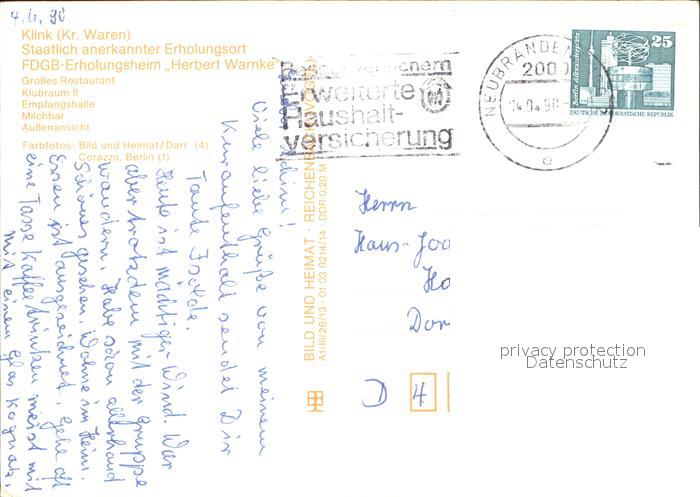 4.4.90
Klink (Kr. Waren)
Staatlich anerkannter Erholungsort
FDGB-Erholungsheim „Herbert Warnke“
Großes Restaurant
Klubraum II
Empfangshalle
Milchbar
Außenansicht
Farbfotos: Bild und Heimat/Darr (4)
Corazza, Berlin (1)
Viele liebe Grüße von meinem
Kuraufenthalt sendet Dir
Tante Isolde.
Heute ist mächtiger Wind. War
aber trotzdem mit der Gruppe
wandern. Habe schon allerhand
Schönes gesehen. Wohne im Heim.
Essen ist ausgezeichnet. Gehe oft
eine Tasse Kaffee trinken meist mit
mit einem Glas Kognak.
BILD UND HEIMAT · REICHENBACH
A1/III/26/13 · 01 03 0214/14 · DDR 0,20 M
Erweiterte
Haushalt-
versicherung
NEUBRANDEN
2000
04.90
e
Berlin, Alexanderplatz
25
DEUTSCHE DEMOKRATISCHE REPUBLIK
Herrn
Hans-Joa
Ho
Dor
D 4
privacy protection
Datenschutz